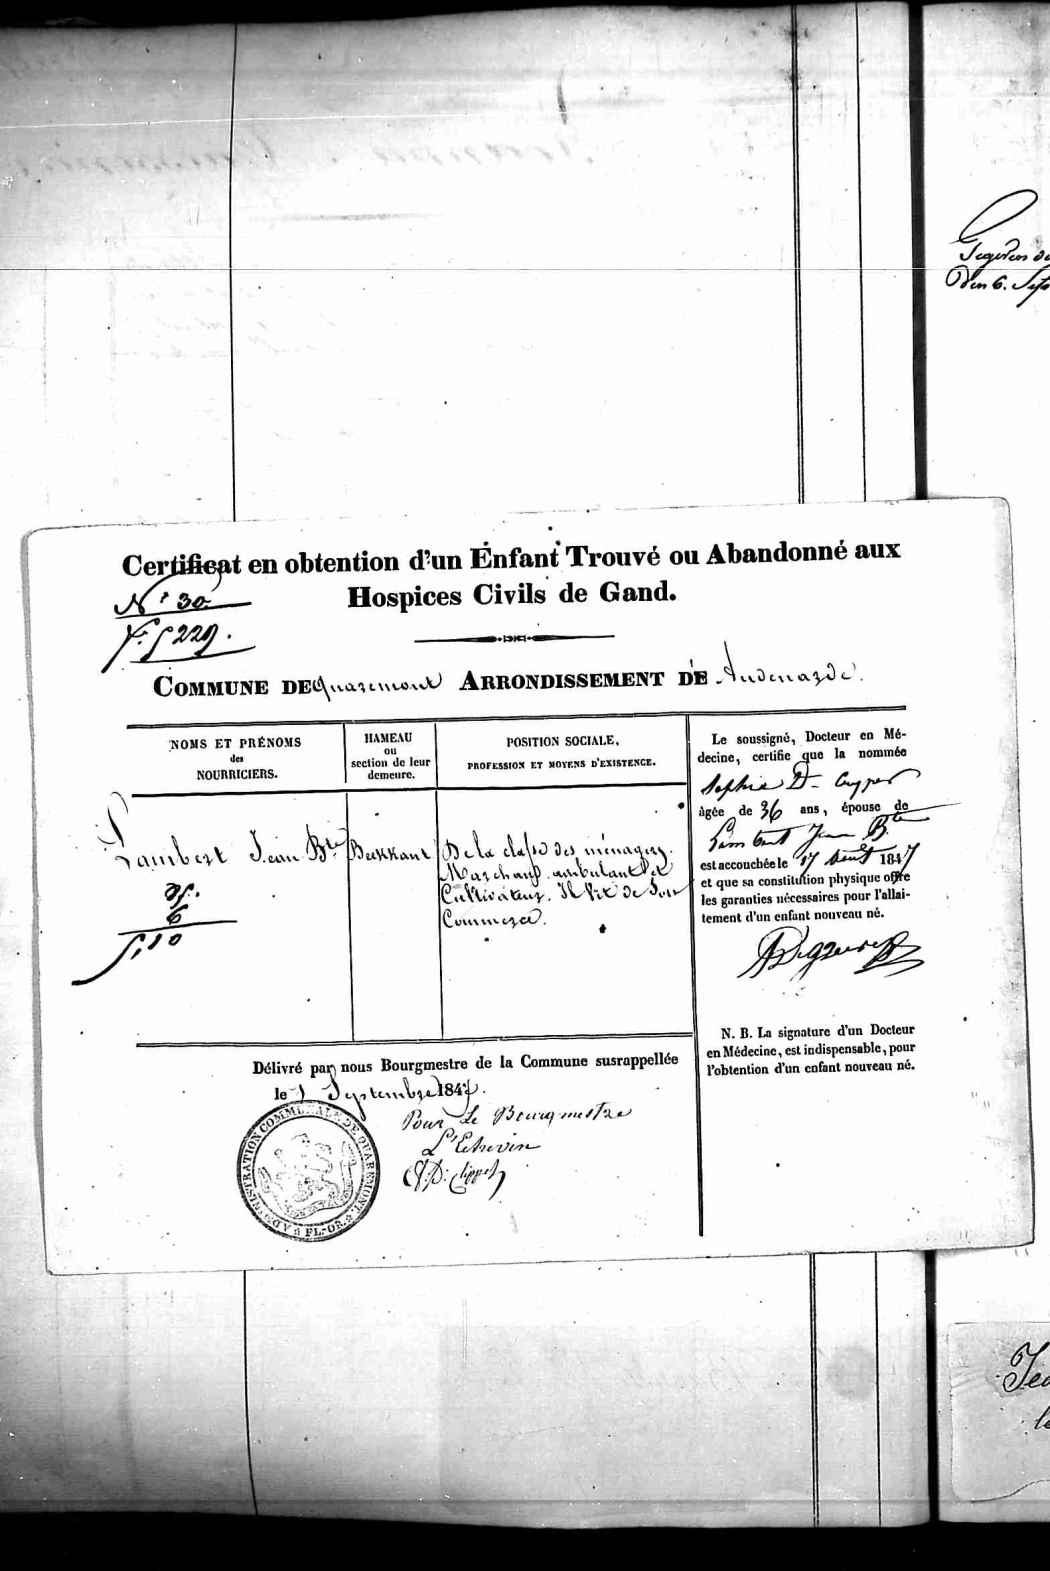 Certificat en obtention d'un Enfant Trouvé ou Abandonné aux
Hospices Civils de Gand.
N° 30
F° 229.
COMMUNE DE Quaremont ARRONDISSEMENT DE Audenarde.
NOMS ET PRÉNOMS
des
NOURRICIERS.
HAMEAU
ou
section de leur
demeure.
POSITION SOCIALE,
PROFESSION ET MOYENS D'EXISTENCE.
Lambert Jean Bte
6
Beekkant
De la classe des ménagers.
Marchand ambulant et
Cultivateur. Il vit de son
Commerce.
Le soussigné, Docteur en Mé-
decine, certifie que la nommée
Sophie De Cuyper
âgée de 36 ans, épouse de
Lambert Jean Bte
est accouchée le 17 août 1847
et que sa constitution physique offre
les garanties nécessaires pour l'allai-
tement d'un enfant nouveau né.
N. B. La signature d'un Docteur
en Médecine, est indispensable, pour
l'obtention d'un enfant nouveau né.
Délivré par nous Bourgmestre de la Commune susrappellée
le 1 Septembre 1847.
Pour Le Bourgmestre
L'Echevin
ADMINISTRATION COMMUNALE DE QUAREMONT
FL.-OR.
Gegeven
Den 6. Sep